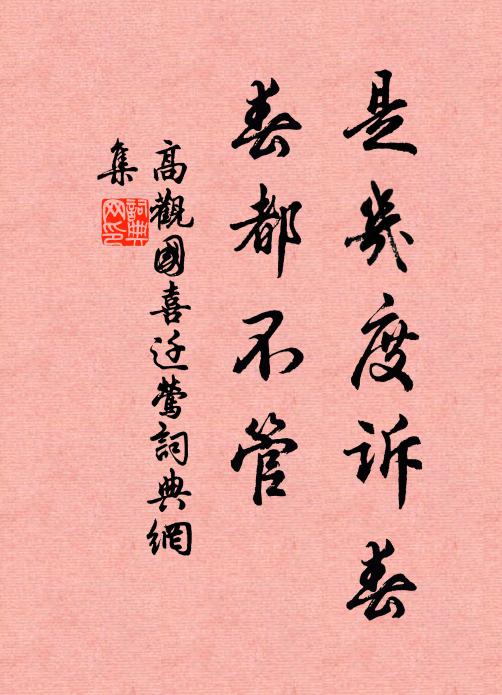 是幾度訴春
春都不管
高觀國喜迁鶯詞典網
集
詞典
网印